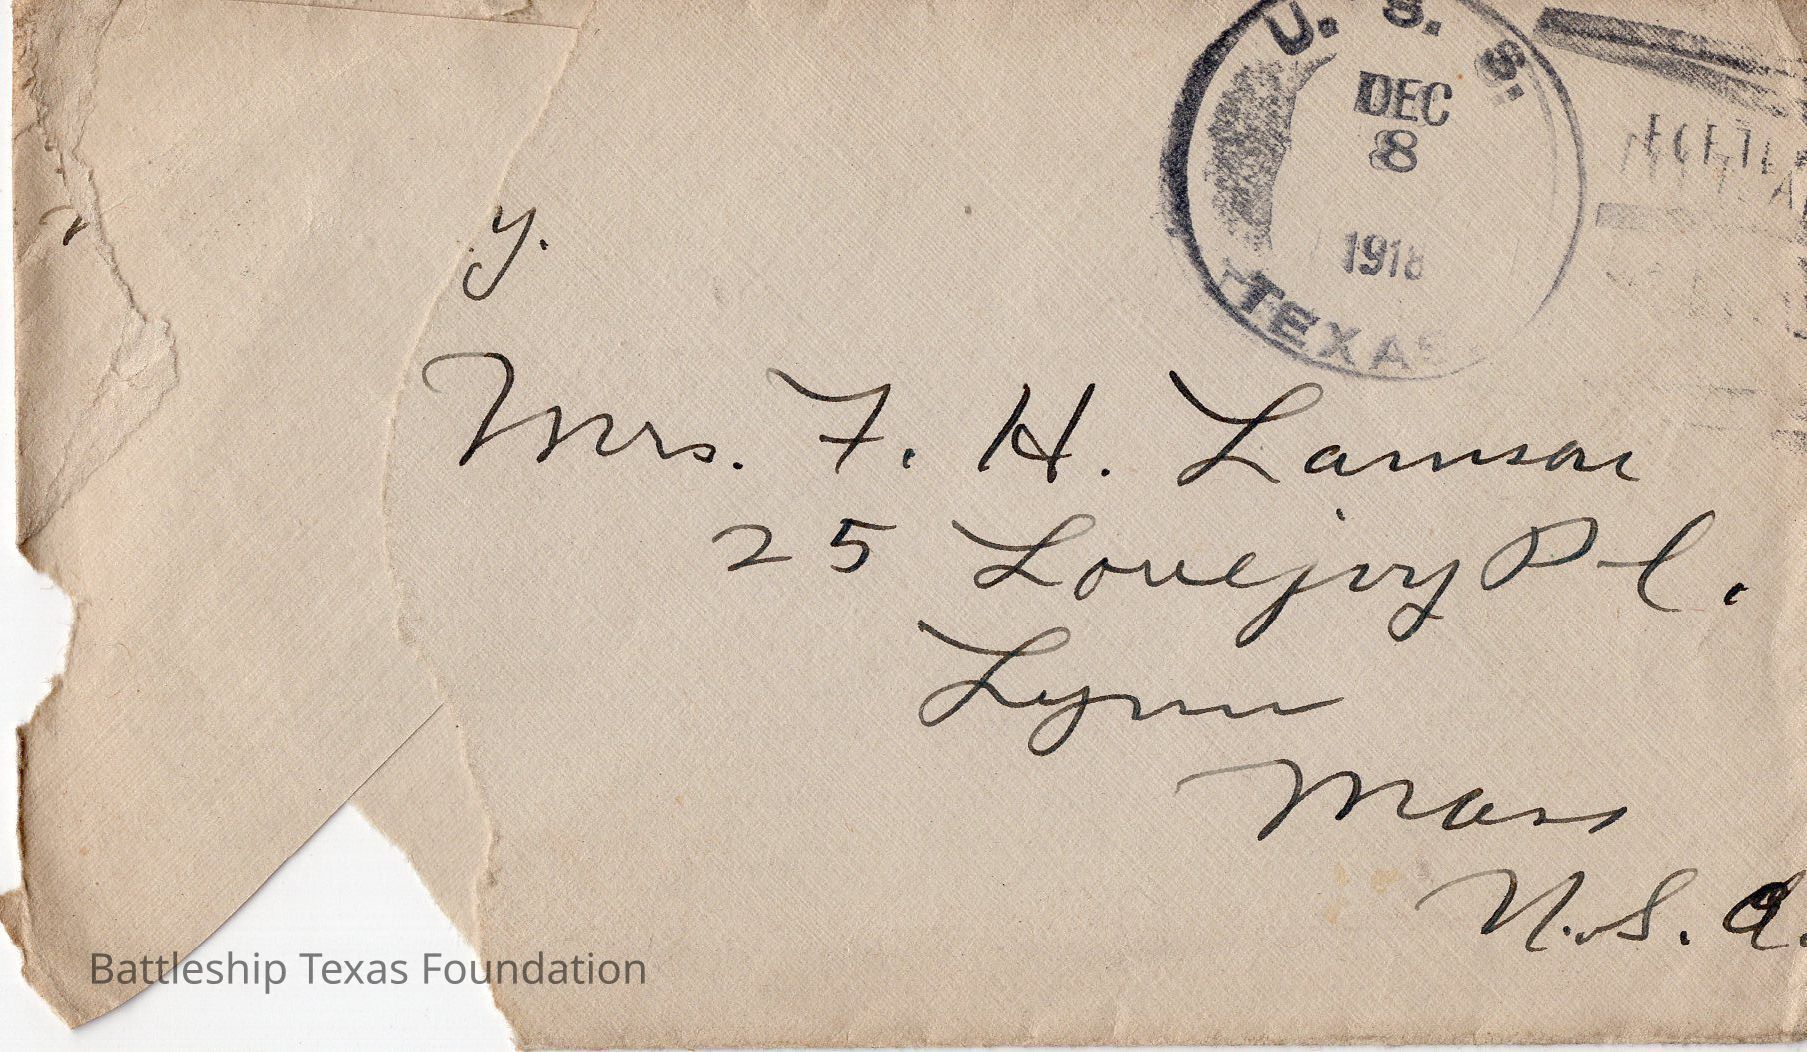 U. S. S.
DEC
8
1918
TEXAS
y.
Mrs. F. H. Lamson
25 Lovejoy Pl.
Lynn
Mass
U.S.A.
Battleship Texas Foundation